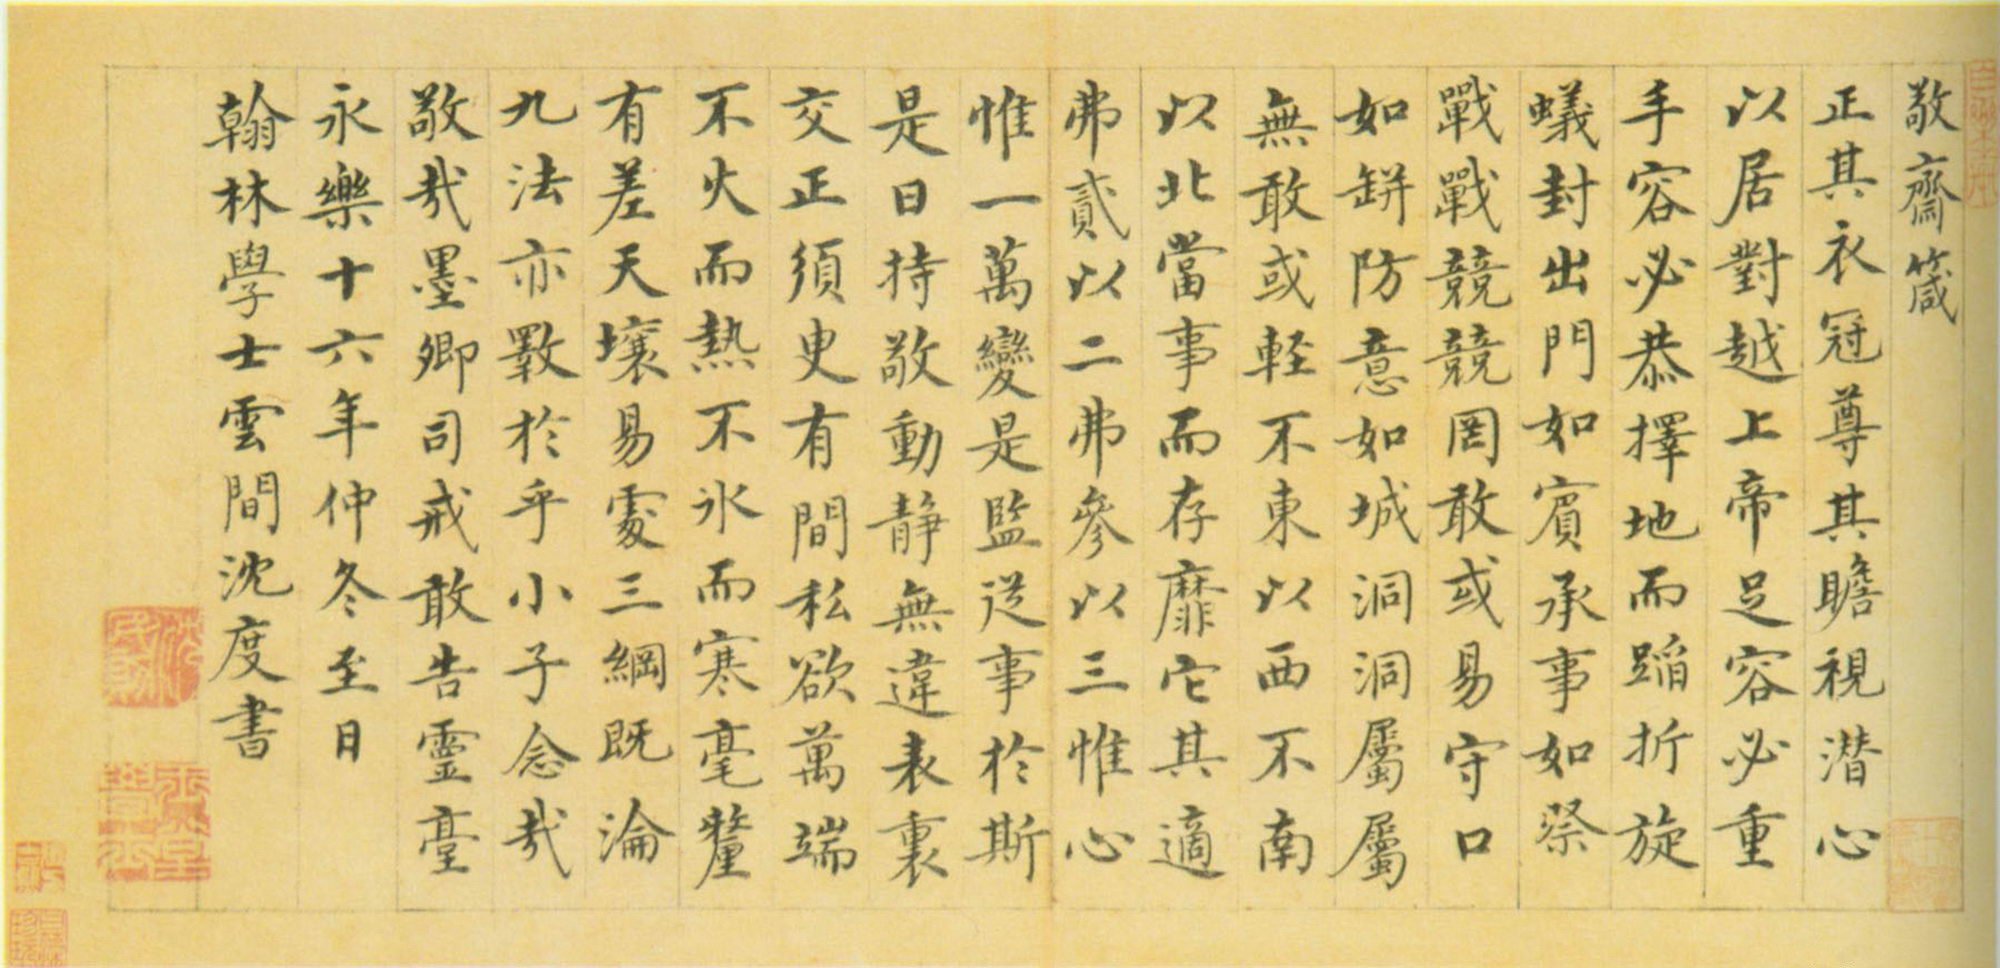 敬齋箴
正其衣冠尊其瞻視潜心
以居對越上帝足容必重
手容必恭擇地而蹈折旋
蟻封出門如賓承事如祭
戰戰競競罔敢或易守口
如缾防意如城洞洞屬屬
無敢或軽不東以西不南
以北當事而存靡它其適
弗貳以二弗參以三惟心
惟一萬變是監從事於斯
是曰持敬動静無違表裏
交正須臾有間私欲萬端
不火而熱不氷而寒毫釐
有差天壤易處三綱既淪
九法亦斁於乎小子念哉
敬哉墨卿司戒敢告靈臺
永樂十六年仲冬至日
翰林學士雲間沈度書